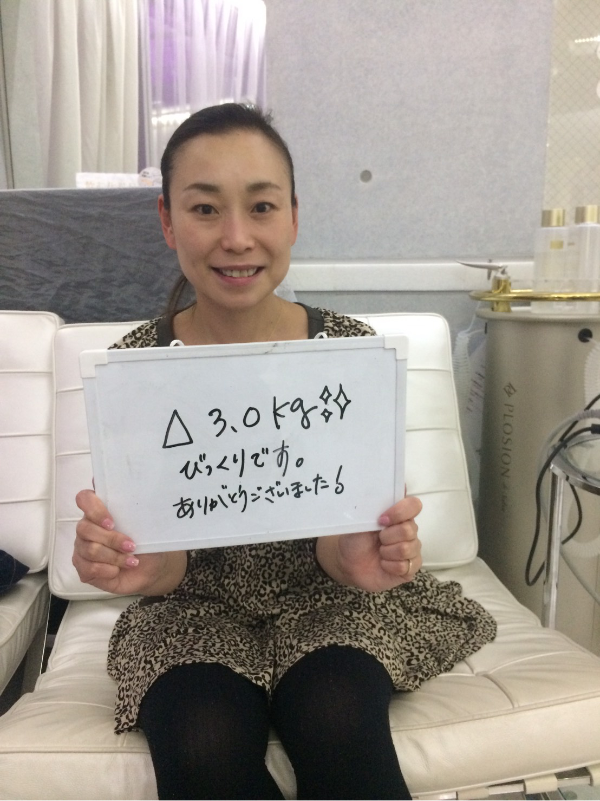 △ 3.0kg
びっくりです。
ありがとうございました!
PLOSION